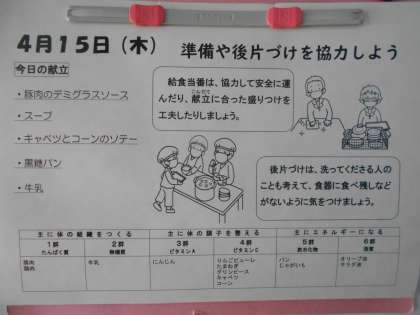 4月15日(木)
準備や後片づけを協力しよう
今日の献立
・豚肉のデミグラスソース
・スープ
・キャベツとコーンのソテー
・黒糖パン
・牛乳
給食当番は、協力して安全に運
んだり、献立に合った盛りつけを
こんだて
工夫したりしましょう。
後片づけは、洗ってくださる人の
ことも考えて、食器に食べ残しなど
がないように気をつけましょう。
主に体の組織をつくる
主に体の調子を整える
主にエネルギーになる
1群 2群 3群 4群 5群 6群
たんぱく質 無機質 ビタミンA ビタミンC 炭水化物 脂質
豚肉 牛乳 にんじん りんごピューレ パン オリーブ油
鶏肉 たまねぎ じゃがいも サラダ油
グリンピース
キャベツ
コーン